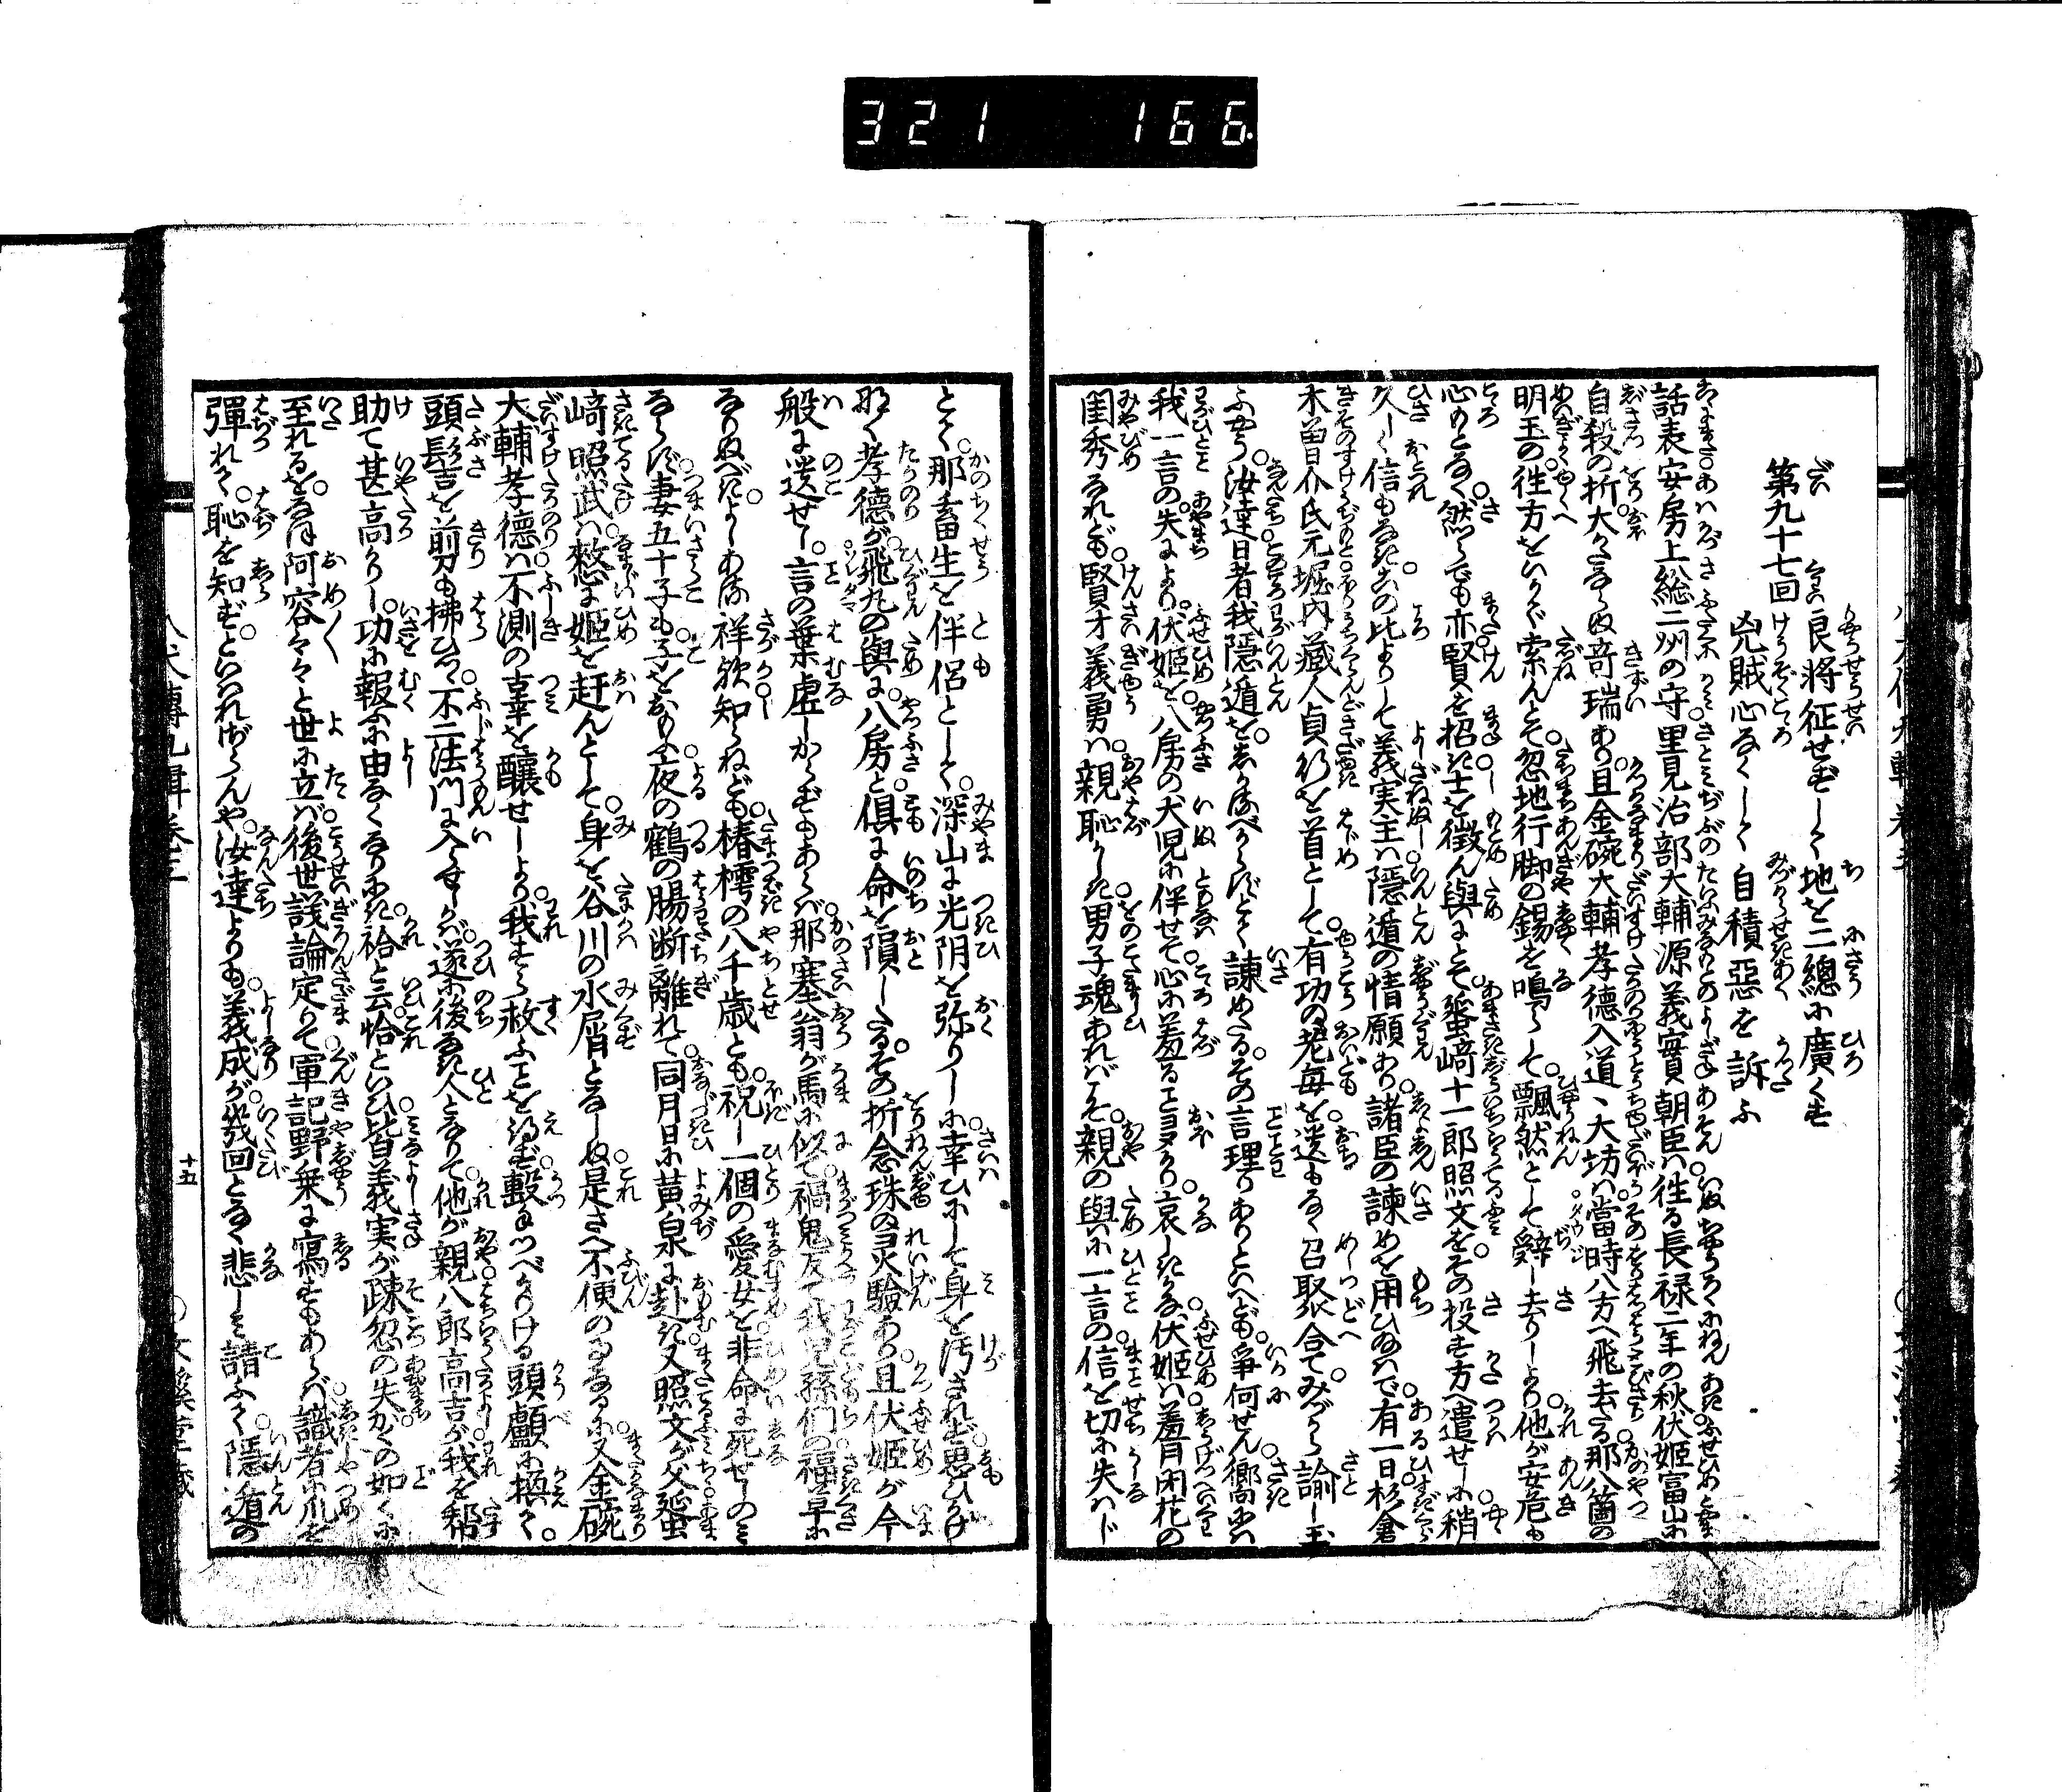 321 166
第九十七回
良將征せずして地を二總に廣くす
兇賊心なくして自積惡を訴ふ
話表安房上総二州の守里見治部大輔源義實朝臣ハ徃る長禄二年の秋伏姫富山に
自殺の折大かたならぬ竒瑞あり且金碗大輔孝德入道丶大坊ハ當時八方へ飛去たる那八箇の
明玉の徃方をいかで索んとて忽地行脚の錫を鳴らして飄然として辭し去りしより他が安危も
心もとなく然らでも亦賢を招き士を徴ん與にとて蜑﨑十一郎照文をその投す方へ遣せしに稍
久しく信もなきこの比よりして義実主ハ隠遁の情願あり諸臣の諫めを用ひ給ハで有一日杉倉
木曽介氏元堀内藏人貞行を首として有功の老毎を送もなく召聚合てみづから諭し玉
ふやう汝達日者我隠遁をしかるべからずとて諫めたるその言理りありといへども爭何せん嚮にハ
我一言の失によりて伏姫を八房の犬児に伴せて心に羞ることヨタかり哀しきかな伏姫ハ羞月閉花の
閨秀なれども賢才義勇ハ親恥かしき男子魂あれバこそ親の與に一言の信を切に失ハじ
とて那畜生を伴侶として深山に光阴を弥りしに幸ひにして身を汚されず思ひかけ
なく孝德が飛丸の與に八房と俱に命を隕したるその折念珠の灵驗あり且伏姫が今
般に送せし言の葉虚しからずもあらバ那塞翁が馬に似て禍鬼反て我児孫們の福ひ早に
なりぬべきよしある祥歟知らねども椿樗の八千歳とも祝し一個の愛女を非命に死せしのミ
ならず妻五十子も子をおもふ夜の鶴の腸断離れて同月日に黄泉に赴き又照文が父蜑
﨑照武ハ慜に姫を赶んとて身を谷川の水屑となしぬ是さへ不便の事なるに又金碗
大輔孝德ハ不測の辜を醸せしより我すら赦ふことを得ず數年つべかりける頭顱に換て
頭髻を前刀も拂ひつ不二法門に入らせしが遂に後なき人となりて他が親八郎高吉が我を幇
助て甚高かりし功に報ふに由なくなりにき袷と云恰といひ皆義実が疎忽の失かくの如くに
至れるをなほ阿容々々と世に立バ後世議論定りて軍記野乗に寫すもあらバ識者に爪を
彈れて恥を知らずといハれずらんや汝達よりも義成が幾回となく悲しミ請ふて隠遁の
十五